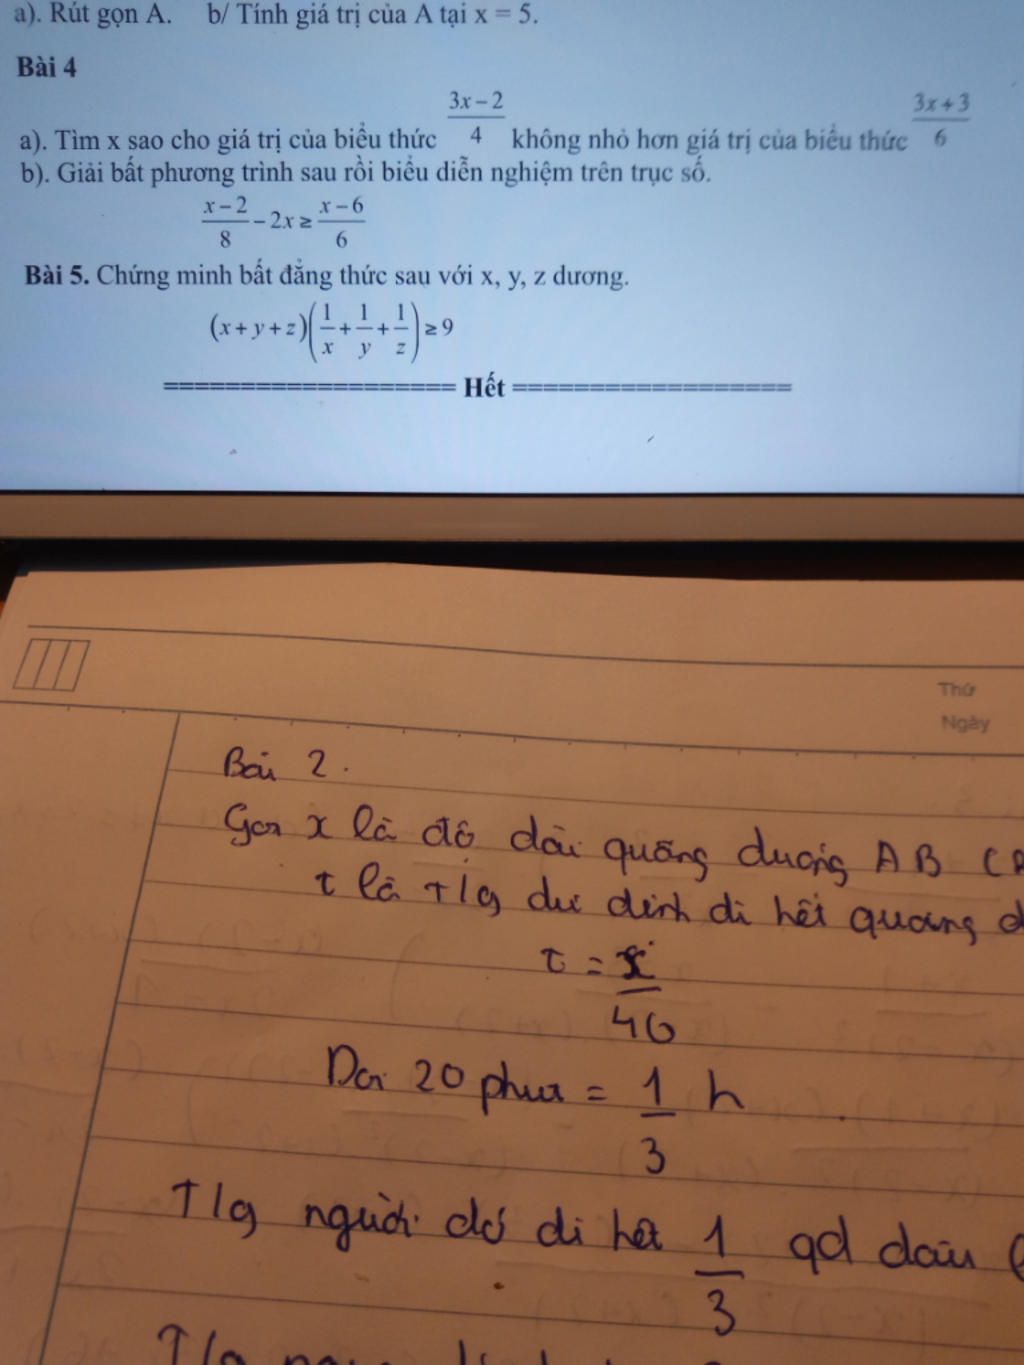 a). Rút gọn A. b/ Tính giá trị của A tại x = 5.
Bài 4
a). Tìm x sao cho giá trị của biểu thức (3x – 2)/4 không nhỏ hơn giá trị của biểu thức (3x + 3)/6
b). Giải bất phương trình sau rồi biểu diễn nghiệm trên trục số.
(x – 2)/8 – 2x ≥ (x – 6)/6
Bài 5. Chứng minh bất đẳng thức sau với x, y, z dương.
(x + y + z)(1/x + 1/y + 1/z) ≥ 9
=================== Hết ==================
Thứ
Ngày
Bài 2.
Gọi x là độ dài quãng đường AB
t là T/g dự định đi hết quãng
t = x/40
Đổi 20 phút = 1/3 h
T/g người đó đi hết 1/3 qđ đầu
T/g